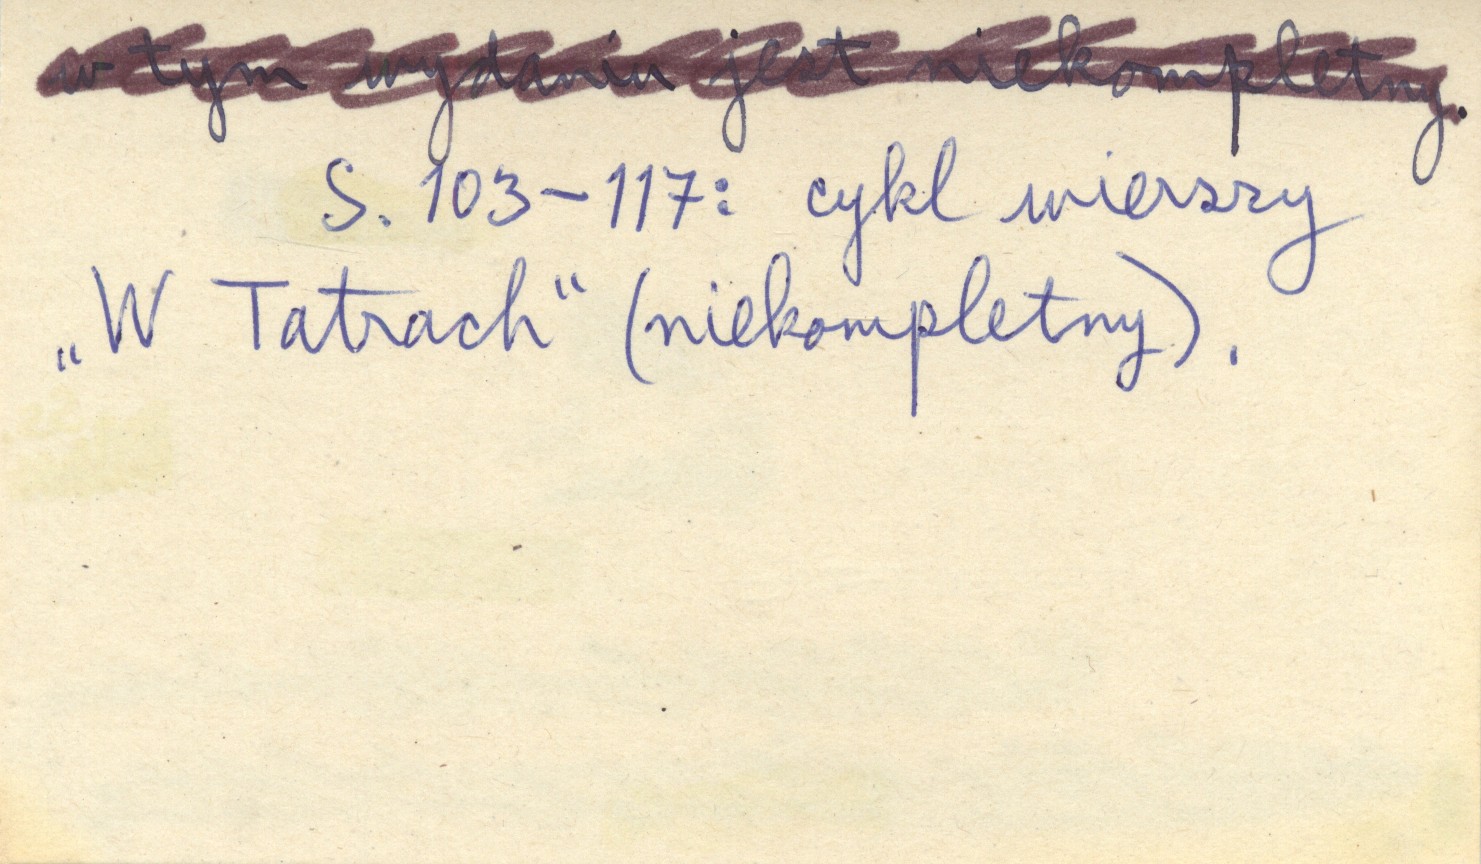 w tym wydaniu jest niekompletny.
S. 103–117: cykl wierszy
„W Tatrach“ (niekompletny).